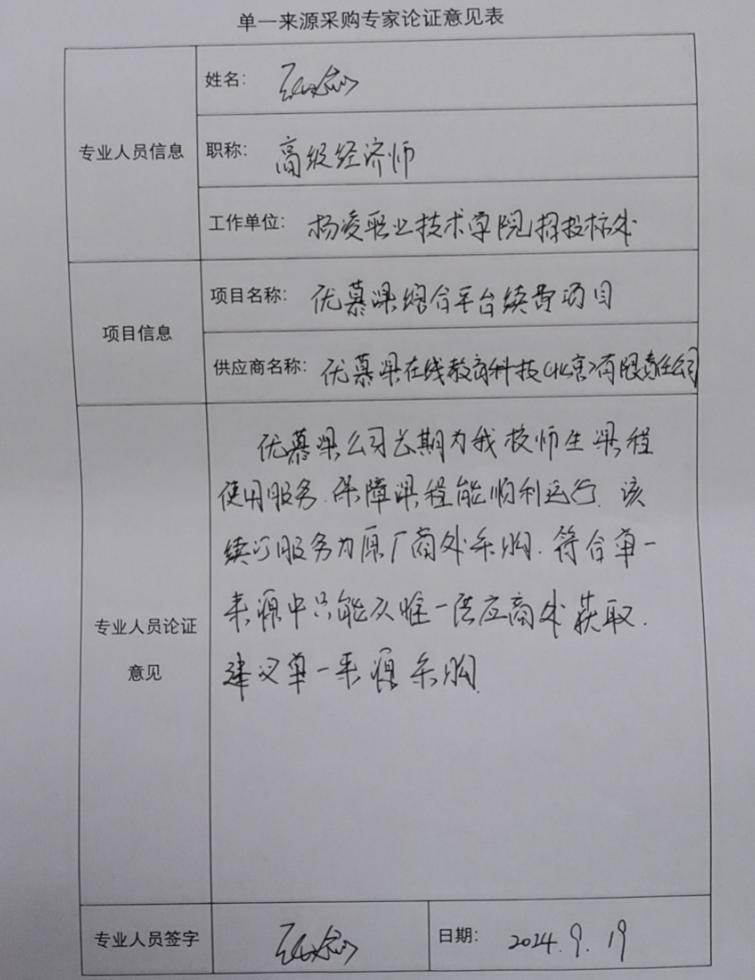 单一来源采购专家论证意见表
专业人员信息
姓名:
职称: 高级经济师
工作单位: 杨凌职业技术学院招投标处
项目信息
项目名称: 优慕课综合平台续费项目
供应商名称: 优慕课在线教育科技(北京)有限责任公司
专业人员论证
意见
优慕课公司长期为我校师生课程
使用服务.保障课程能顺利运行.该
续订服务为原厂商处采购.符合单一
来源中只能从唯一供应商处获取.
建议单一来源采购.
专业人员签字
日期: 2024.9.19